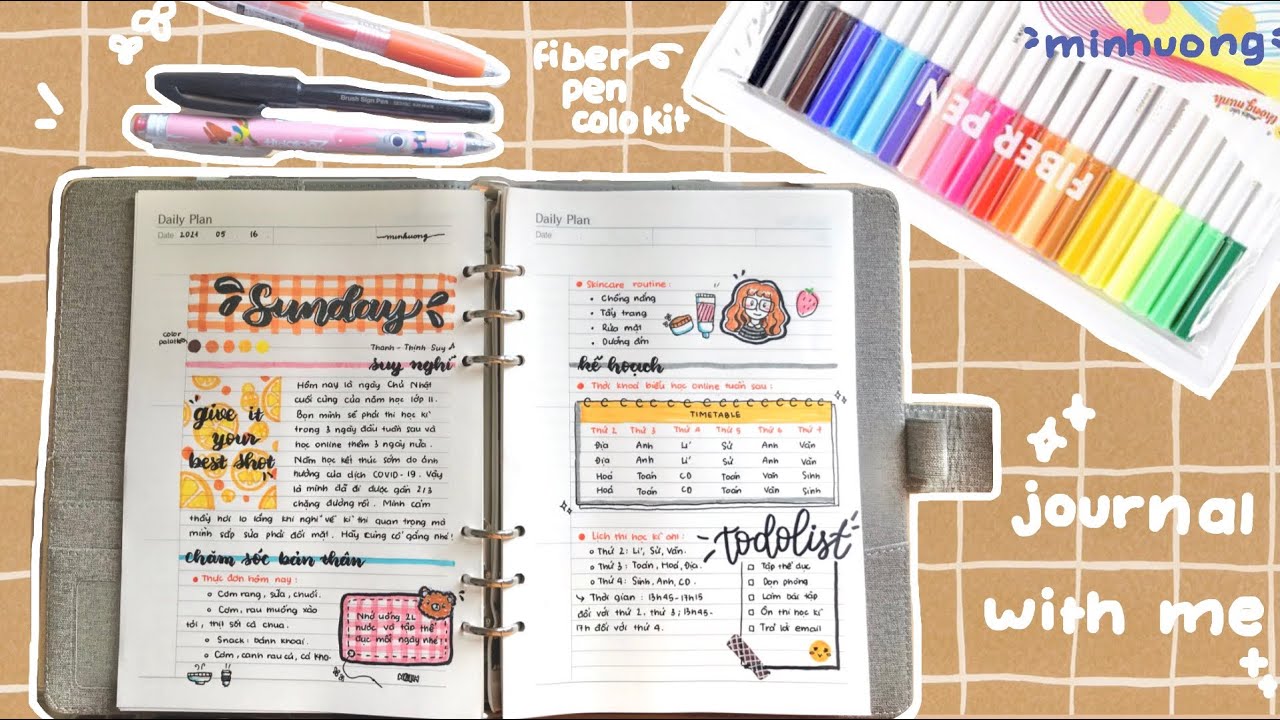 fiber
pen
colokit
minhuong
Brush Sign Pen
FIBER PEN
thông minh
Daily Plan
Date 2021 05 16
minhuong
Sunday
color
palette
Thanh-Thính Suy
suy nghĩ
give it
your
best shot
Hôm nay là ngày Chủ Nhật
cuối cùng của năm học lớp 11.
Bọn mình sẽ phải thi học kì
trong 3 ngày đầu tuần sau và
học online thêm 3 ngày nữa.
Năm học kết thúc sớm do ảnh
hưởng của dịch COVID-19. Vậy
là mình đã đi được gần 2/3
chặng đường rồi. Mình cảm
thấy hơi lo lắng khi nghĩ về kì thi quan trọng mà
mình sắp sửa phải đối mặt. Hãy cùng cố gắng nhé!
chăm sóc bản thân
Thực đơn hôm nay:
Cơm rang, sữa, chuối.
Cơm, rau muống xào
tỏi, thịt sốt cà chua.
Snack: bánh khoai.
Cơm, canh rau củ, cá kho.
Nhớ uống 2L
nước và tập thể
dục mỗi ngày nhé!
Daily Plan
Date
Skincare routine:
Chống nắng
Tẩy trang
Rửa mặt
Dưỡng ẩm
kế hoạch
Thời khoá biểu học online tuần sau:
TIMETABLE
Thứ 2 Thứ 3 Thứ 4 Thứ 5 Thứ 6 Thứ 7
Địa Anh Lí Sử Anh Văn
Địa Anh Lí Sử Anh Văn
Hoá Toán CD Toán Văn Sinh
Hoá Toán CD Toán Văn Sinh
Lịch thi học kì on:
Thứ 2: Lí, Sử, Văn.
Thứ 3: Toán, Hoá, Địa.
Thứ 4: Sinh, Anh, CD.
Thời gian: 13h45-17h15
đối với thứ 2, thứ 3; 13h45-
17h đối với thứ 4.
todolist
Tập thể dục
Dọn phòng
Làm bài tập
Ôn thi học kì
Trả lời email
journal
with me